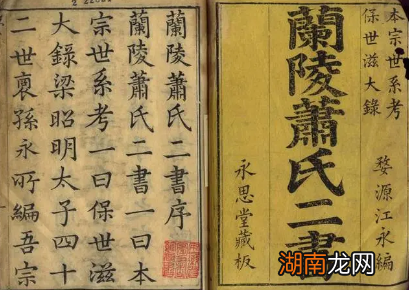 本宗世系考
保世滋大錄
婺源江永編
蘭陵蕭氏二書
永思堂藏板
蘭陵蕭氏二書序
蘭陵蕭氏二書一曰本
宗世系考一曰保世滋
大錄梁昭明太子四十
二世裔孫永所編吾宗
湖南龙网